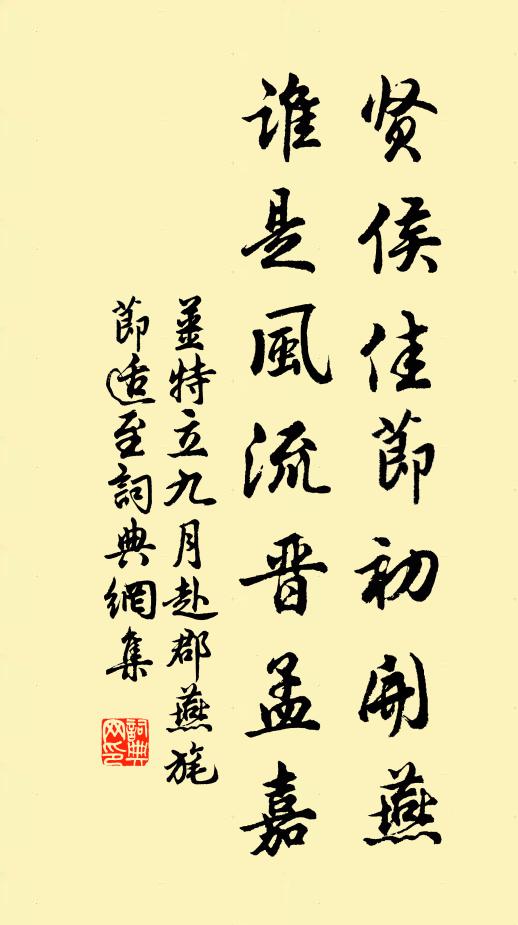 贤侯佳節初開燕
誰是風流晋孟嘉
姜特立九月赴郡燕旄
節适至詞典網集
詞典網印